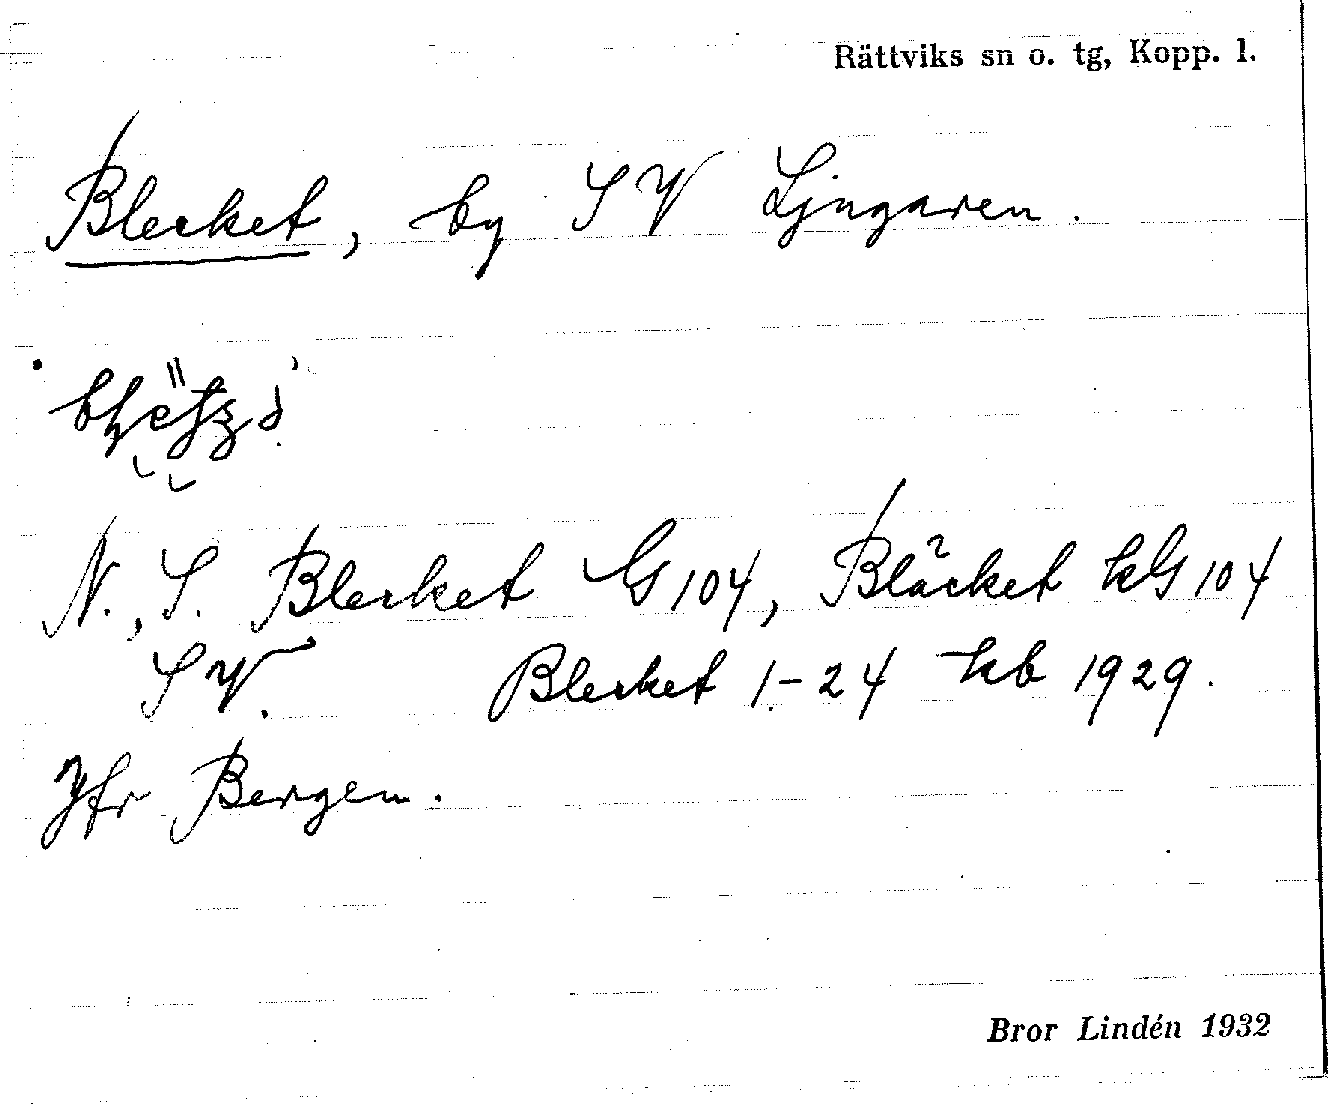 Rättviks sn o. tg, Kopp. l.
Blecket, by SV Ljugaren.
N., S. Blecket G 104, Bläcket kG 104
SV. Blecket 1-24 kb 1929.
Jfr Bergen.
Bror Lindén 1932